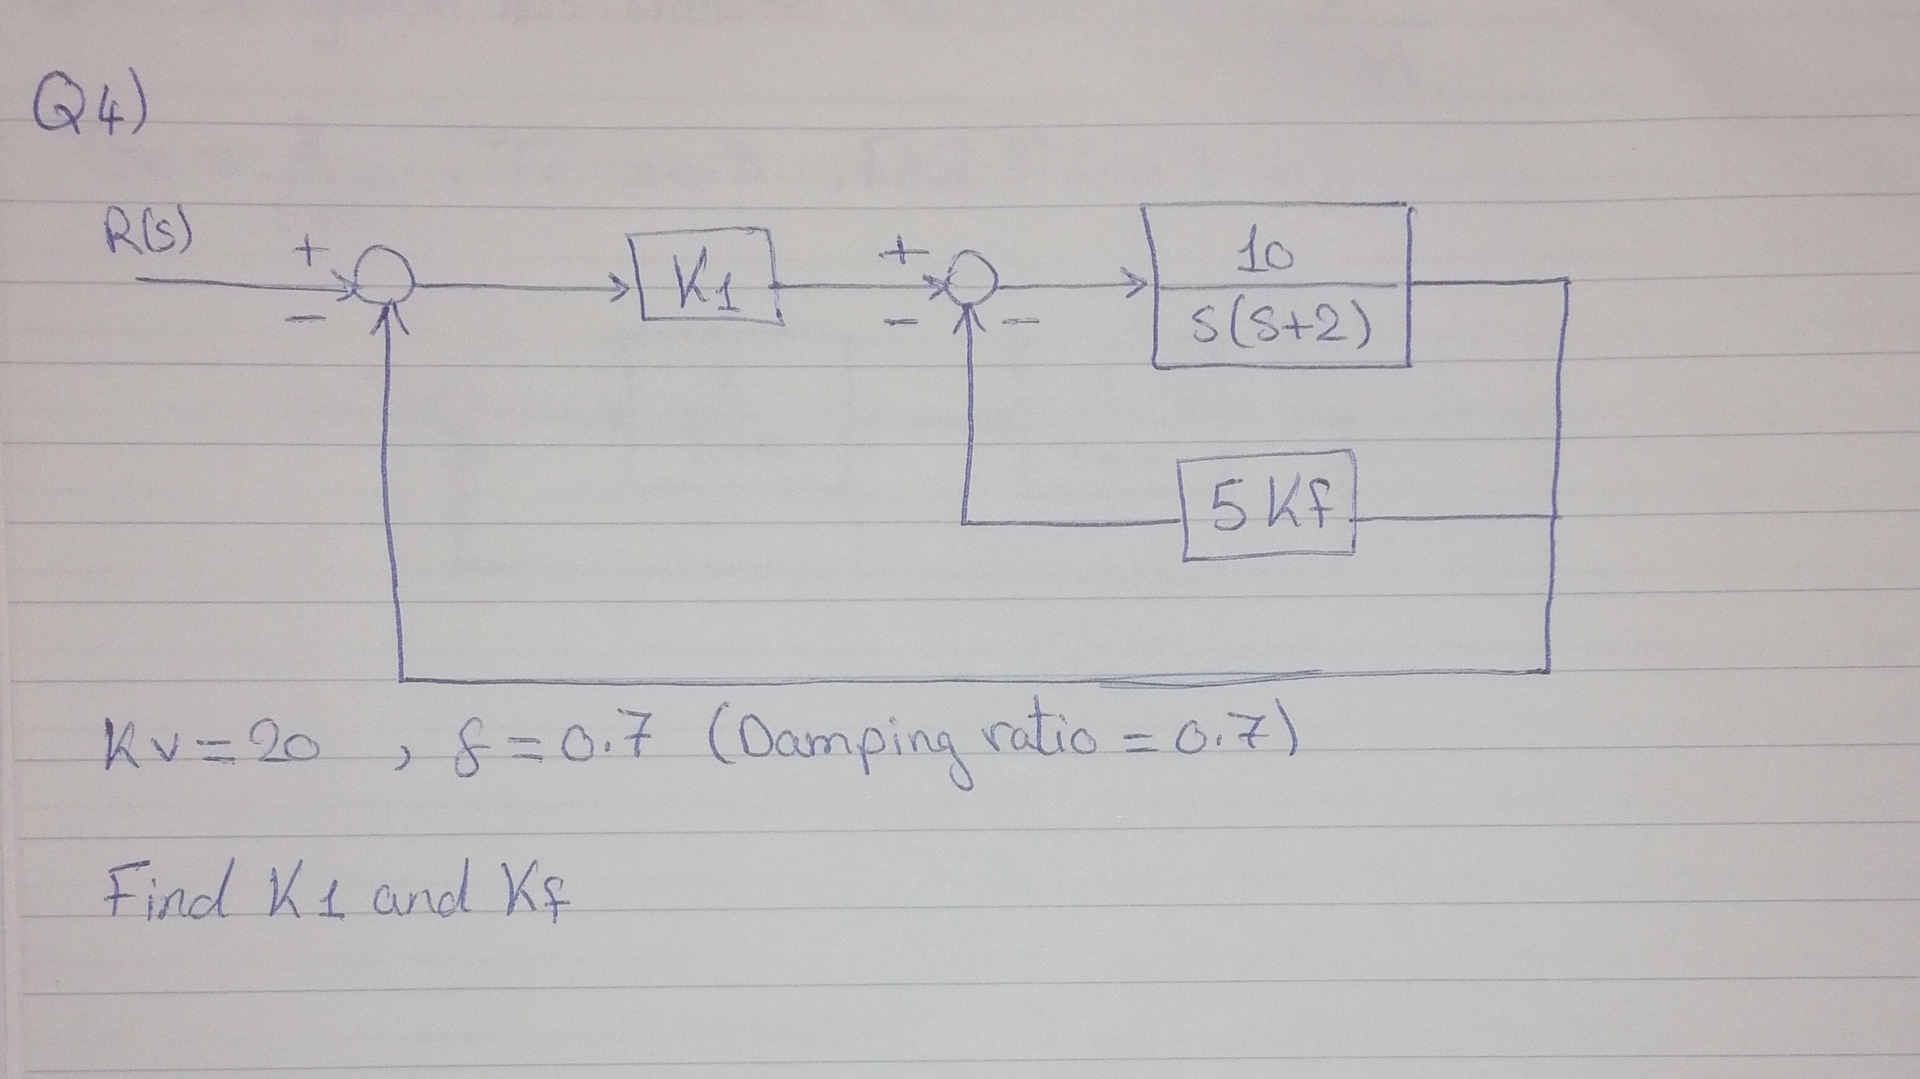 Q4)
R(s)
+
K1
+
10
s(s+2)
−
− −
5 Kf
Kv = 20 , ξ = 0.7 (Damping ratio = 0.7)
Find K1 and Kf